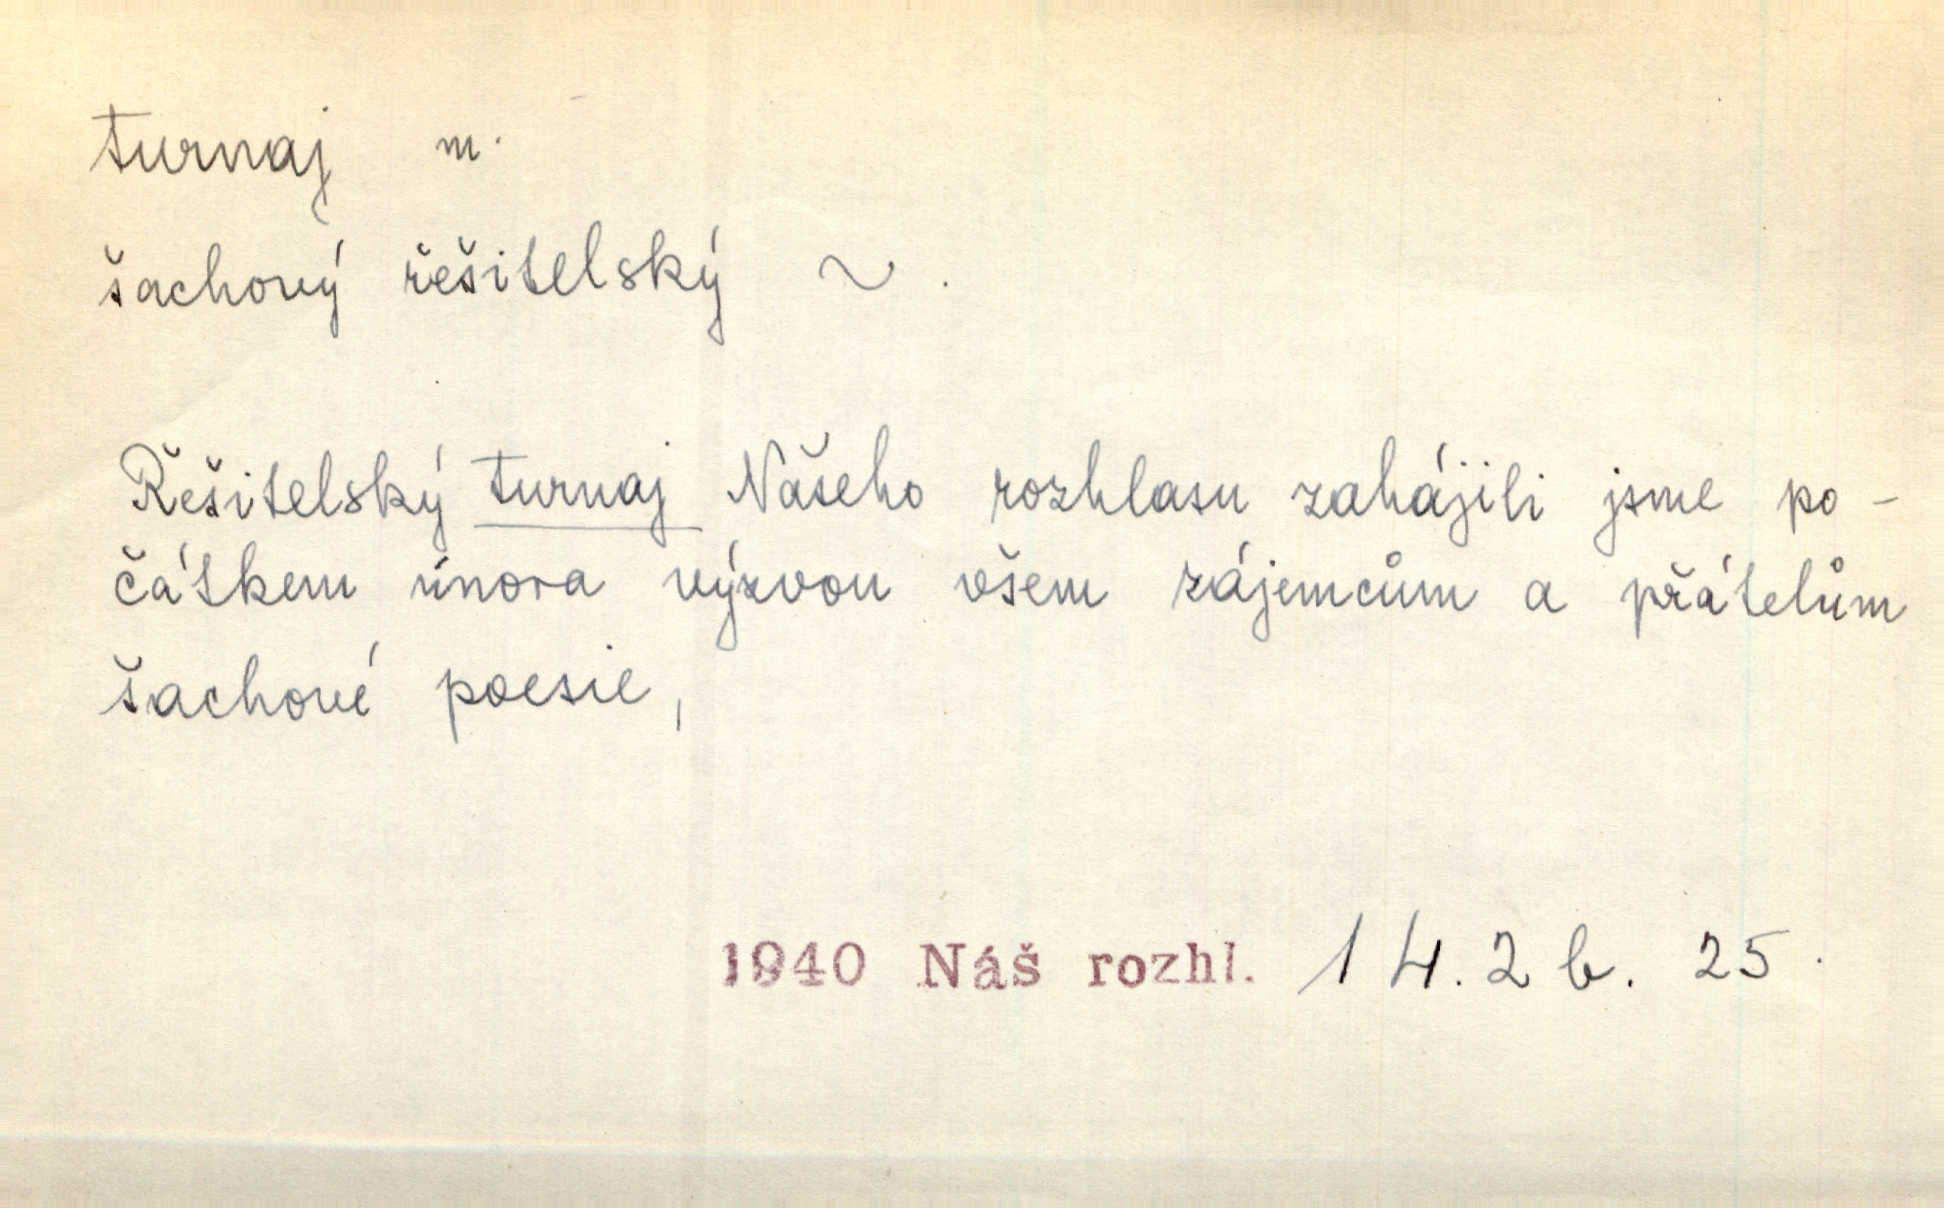 turnaj m.
šachový řešitelský ~.
Řešitelský turnaj Našeho rozhlasu zahájili jsme po-
čátkem února výzvou všem zájemcům a přátelům
šachové poesie,
1940 Náš rozhl. 14. 2 b. 25.